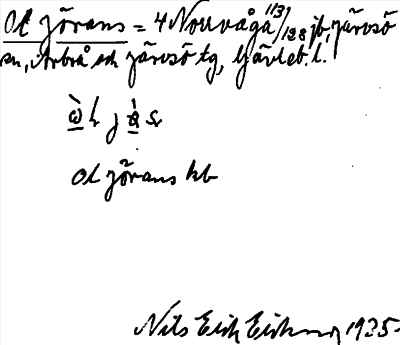 Ol jörans = 4 Norrvåga 113/128 jb, Järvsö
sn, Arbrå och Järvsö tg, Gävleb. l.
Ol jörans kb
Nils Erik Erikson 1925